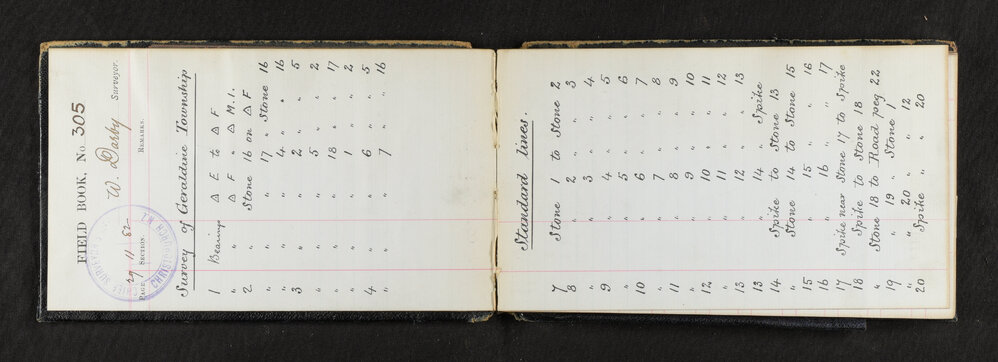 FIELD BOOK, No. 305
W. Darby Surveyor.
PAGE. 29/11/82 SECTION REMARKS.
CHIEF SURVEY
CHRISTCHURCH N.Z.
Survey of Geraldine Township
1 Bearings Δ E to Δ F
" " Δ F " Δ M.I.
2 " Stone 16 on Δ F
" " " 17 " Stone 16
" " " 4 " " 16
3 " " 2 " " 5
" " " 5 " " 2
" " " 18 " " 17
" " " 1 " " 2
4 " " 6 " " 5
" " " 7 " " 16
Standard lines.
7 Stone 1 to Stone 2
8 " 2 " " 3
" " 3 " " 4
9 " 4 " " 5
" " 5 " " 6
10 " 6 " " 7
" " 7 " " 8
11 " 8 " " 9
" " 9 " " 10
12 " 10 " " 11
" " 11 " " 12
13 " 12 " " 13
13 " 14 " Spike
14 Spike to Stone 13
" Stone 14 to Stone 15
15 " 15 " " 16
16 " 16 " " 17
17 Spike near Stone 17 to Spike
18 Spike to Stone 18
" Stone 18 to Road peg 22
19 " 19 " Stone 1
" " 20 " " 12
20 Spike " " 20